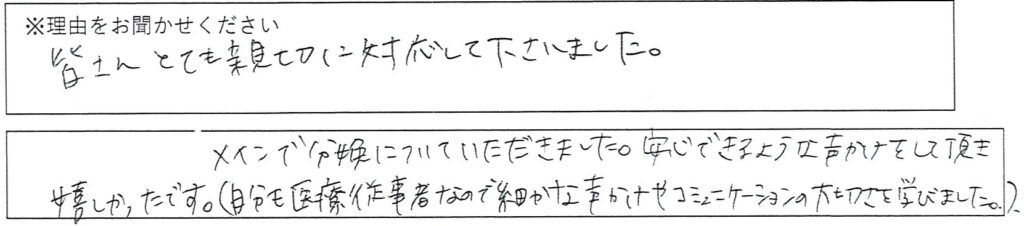 ※理由をお聞かせください
皆さんとても親切に対応して下さいました。
メインで分娩についていただきました。安心できるような声かけをして頂き
嬉しかったです。(自分も医療従事者なので細かな声かけやコミュニケーションの大切さを学びました。)